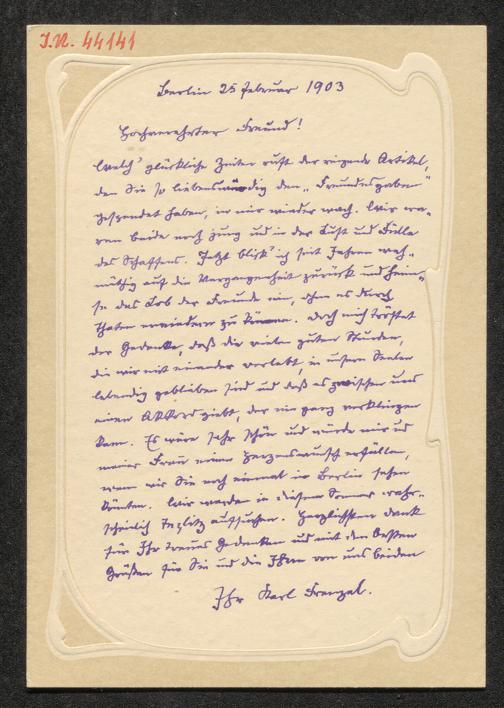 I.N. 44141
Berlin 25 Februar 1903
Hochverehrter Freund!
Welch' glückliche Zeiten ruft der reizende Artikel,
den Sie so liebenswürdig den „Freundesgaben"
gespendet haben, in mir wieder wach. Wir wa-
ren beide noch jung und in der Lust und Fülle
des Schaffens. Jetzt blick' ich seit Jahren weh-
müthig auf die Vergangenheit zurück und heim-
se das Lob der Freunde ein, ohne es durch
Thaten erwiedern zu können. Doch mich tröstet
der Gedanke, daß die vielen guten Stunden,
die wir mit einander verlebt, in unsern Seelen
lebendig geblieben sind und daß es zwischen uns
einen Akkord giebt, der nie ganz verklingen
kann. Es wäre sehr schön und würde mir und
meiner Frau einen Herzenswunsch erfüllen,
wenn wir Sie noch einmal in Berlin sehen
könnten. Wir werden in diesem Sommer wahr-
scheinlich Teplitz aufsuchen. Herzlichsten Dank
für Ihr treues Gedenken und mit den besten
Grüßen für Sie und die Ihren von uns beiden
Ihr Karl Frenzel.